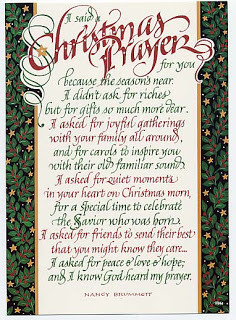 I said a
Christmas
Prayer
for you
because the season's near.
I didn't ask for riches
but for gifts so much more dear.
I asked for joyful gatherings
with your family all around,
and for carols to inspire you
with their old familiar sound.
I asked for quiet moments
in your heart on Christmas morn,
for a special time to celebrate
the Savior who was born.
I asked for friends to send their best
that you might know they care...
I asked for peace & love & hope;
and I know God heard my prayer.
NANCY BRUMMETT